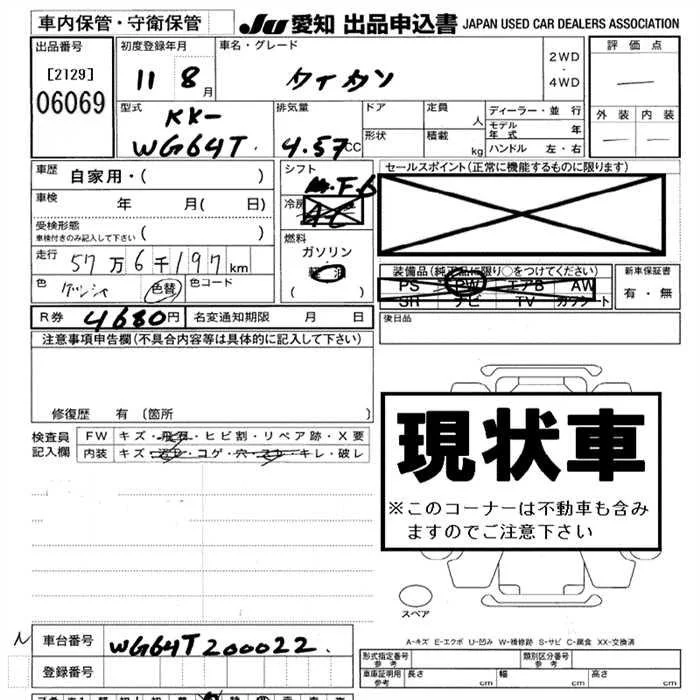 車内保管・守衛保管
Ju 愛知 出品申込書 JAPAN USED CAR DEALERS ASSOCIATION
出品番号
[2129]
06069
初度登録年月
11 8月
車名・グレード
タイタン
2WD
・
4WD
評価点
外装 内装
型式
KK-
WG64T
排気量
4.57CC
ドア
形状
定員 人
積載 kg
ディーラー・並行
モデル年式 年
ハンドル 左・右
車歴
自家用・( )
車検 年 月( 日)
受検形態
車検付きのみ記入して下さい ( )
走行 57万6千197km
色
色替
色コード
シフト
冷房
燃料
ガソリン
軽油
( )
セールスポイント(正常に機能するものに限ります)
装備品(純正品に限り○をつけてください)
PS PW エアB AW
SR ナビ TV カワシート
新車保証書
有・無
後日品
R券 4680円 名変通知期限 月 日
注意事項申告欄(不具合内容等は具体的に記入して下さい)
修復歴 有(箇所 )
検査員
記入欄
FW キズ・飛石・ヒビ割・リペア跡・X要
内装 キズ・汚れ・コゲ・穴・スレ・キレ・破レ
現状車
※このコーナーは不動車も含み
ますのでご注意下さい
スペア
A-キズ E-エクボ U-凹み W-補修跡 S-サビ C-腐食 XX-交換済
N
車台番号 WG64T200022
登録番号
形式指定番号 参考
類別区分番号 参考
車庫証明用 参考 長さ cm 幅 cm 高さ cm